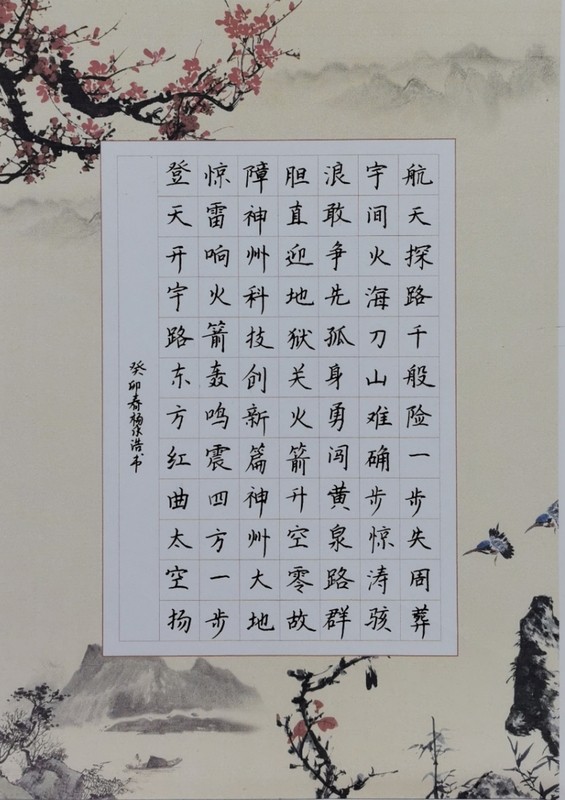 航天探路千般险一步失周葬
宇间火海刀山难确步惊涛骇
浪敢争先孤身勇闯黄泉路群
胆直迎地狱关火箭升空零故
障神州科技创新篇神州大地
惊雷响火箭轰鸣震四方一步
登天开宇路东方红曲太空扬
癸卯春杨保浩书